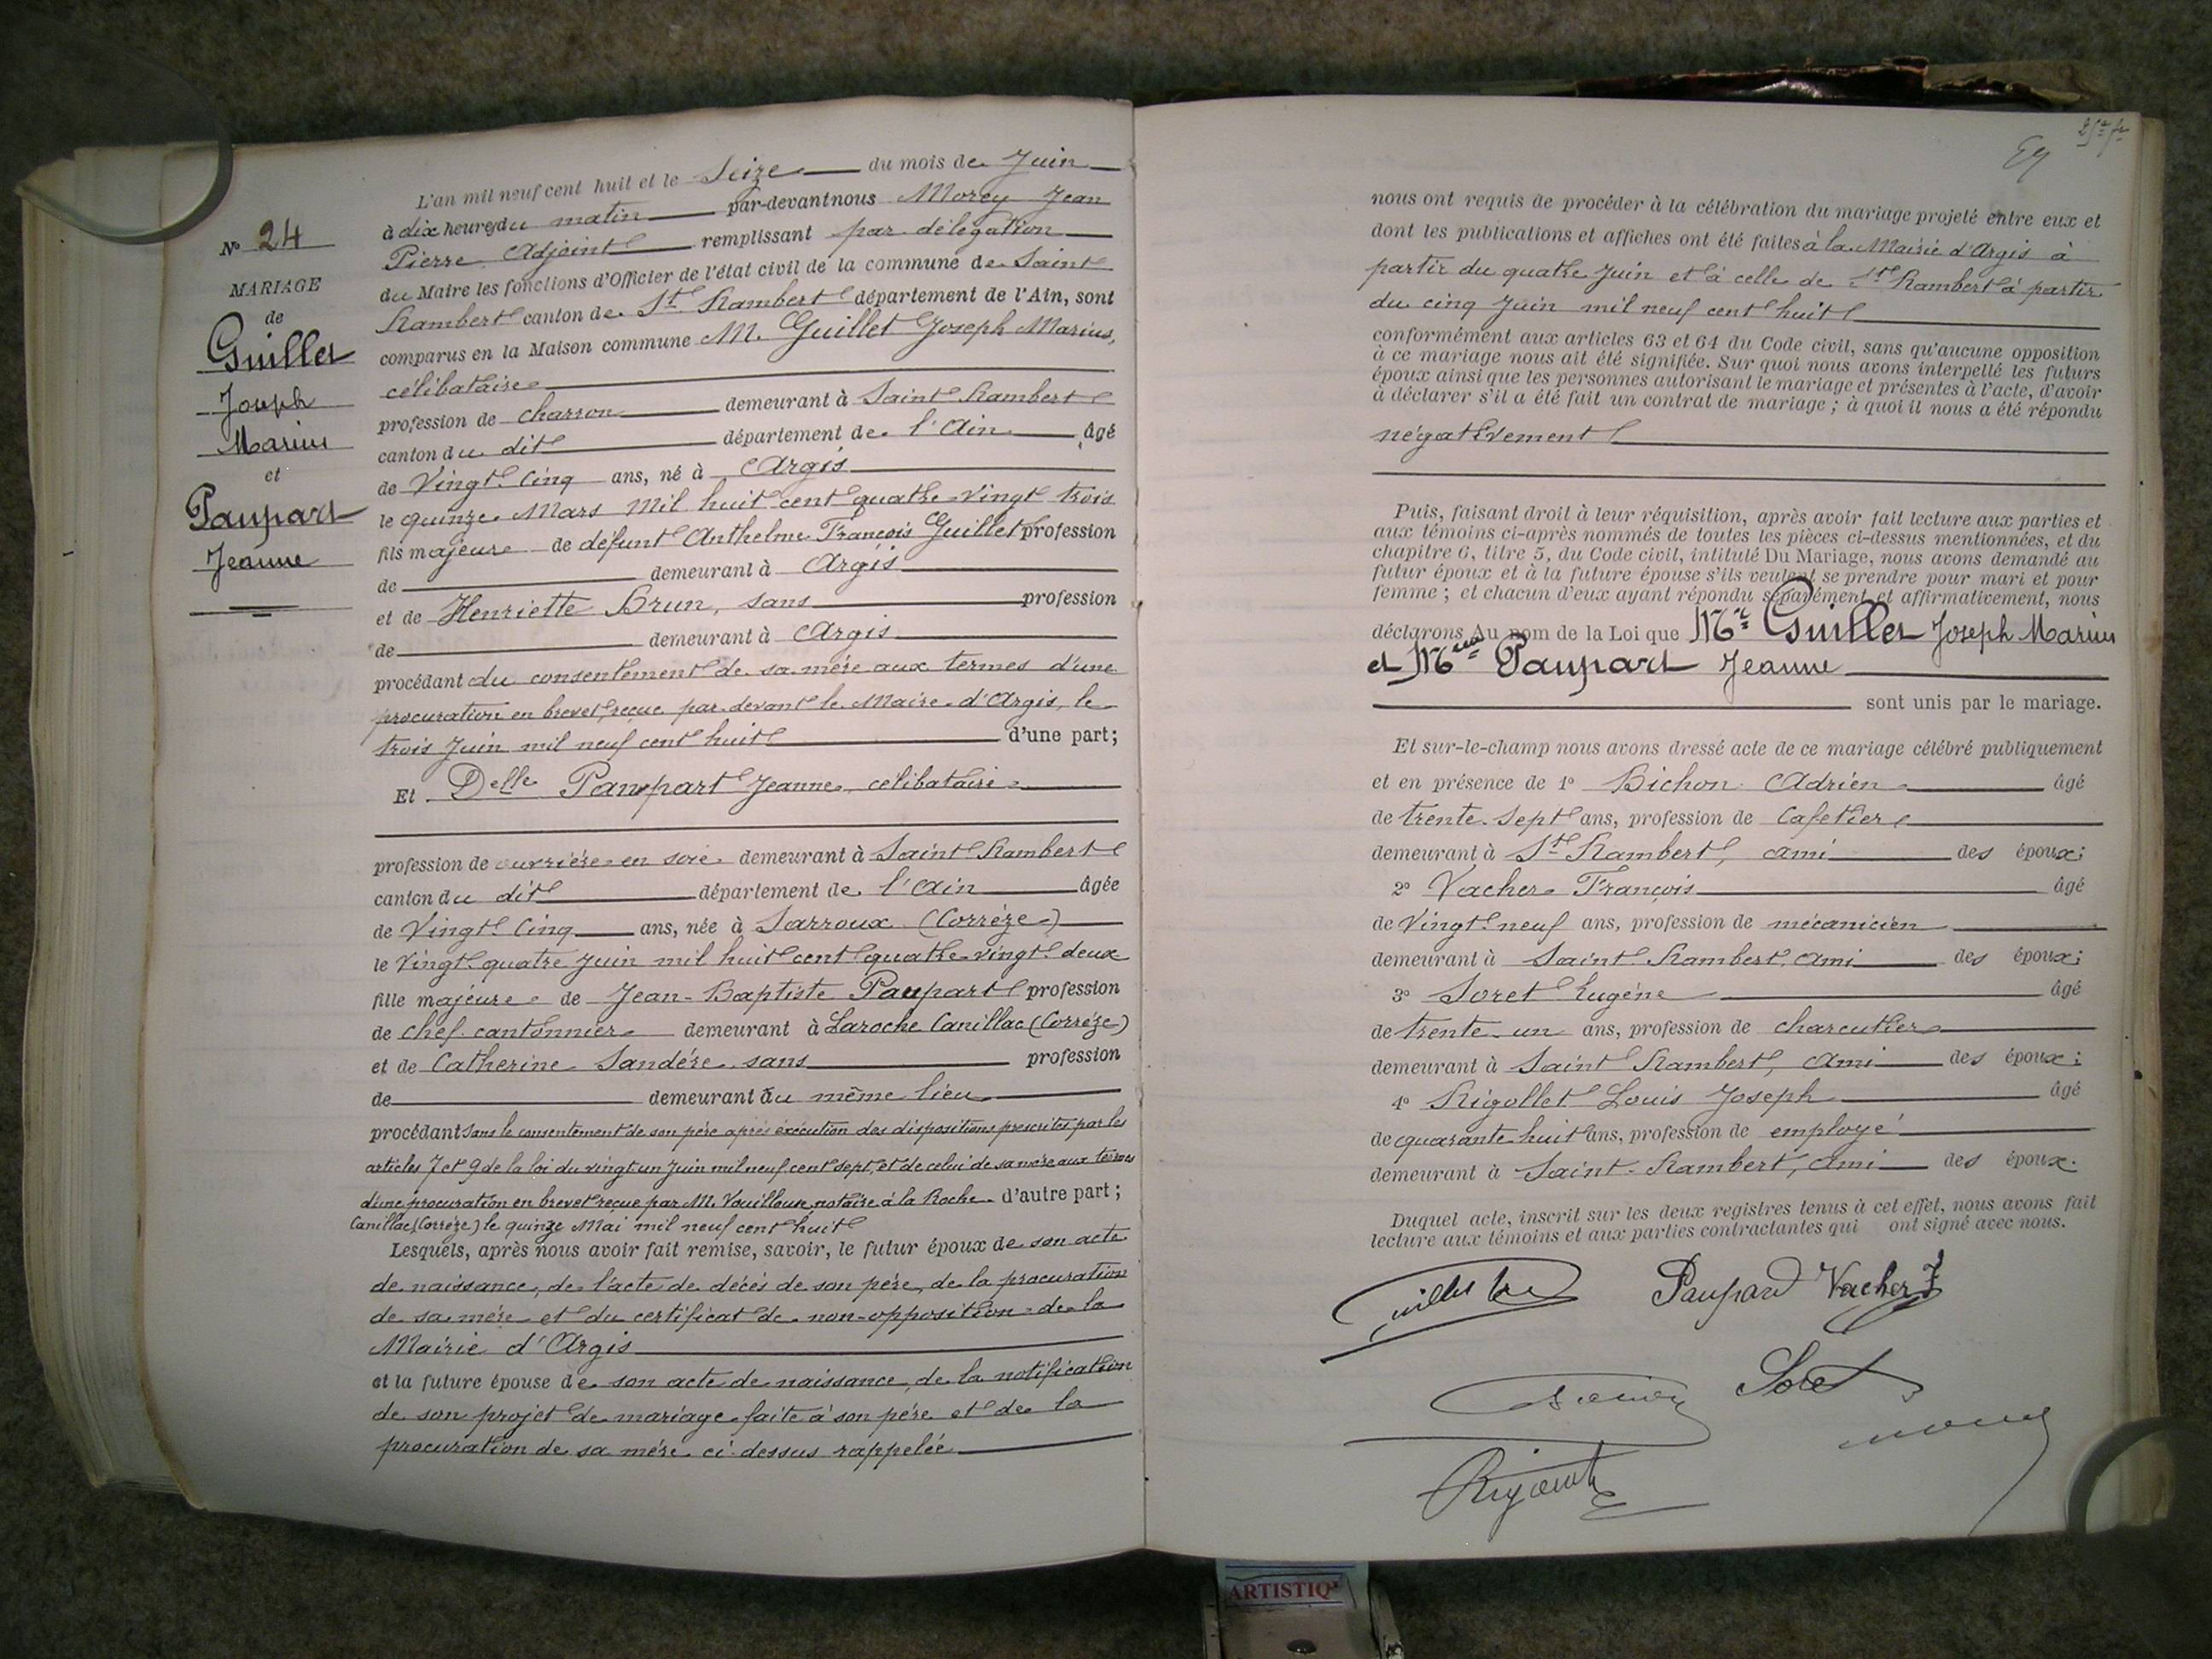 N° 24
MARIAGE
de
Guillet
Joseph
Marius
et
Paupart
Jeanne
L'an mil neuf cent huit et le Seize du mois de Juin
à dix heures du matin par-devant nous Morey Jean
Pierre Adjoint remplissant par délégation
du Maire les fonctions d'Officier de l'état civil de la commune de Saint
Rambert canton de St Rambert département de l'Ain, sont
comparus en la Maison commune M. Guillet Joseph Marius,
célibataire
profession de charron demeurant à Saint Rambert
canton du dit département de l'Ain âgé
de Vingt-Cinq ans, né à Argis
le quinze Mars mil huit cent quatre-vingt trois
fils majeur de défunt Anthelme François Guillet profession
de demeurant à Argis
et de Henriette Brun, sans profession
de demeurant à Argis
procédant du consentement de sa mère aux termes d'une
procuration en brevet, reçue par devant le Maire d'Argis, le
trois Juin mil neuf cent huit d'une part;
Et Delle Paupart Jeanne, célibataire
profession de ouvrière en soie demeurant à Saint Rambert
canton du dit département de l'Ain âgée
de Vingt-Cinq ans, née à Sarroux (Corrèze)
le Vingt-quatre Juin mil huit cent quatre-vingt-deux
fille majeure de Jean-Baptiste Paupart profession
de chef cantonnier demeurant à Laroche Canillac (Corrèze)
et de Catherine Sandère sans profession
de demeurant au même lieu
procédant sans le consentement de son père après exécution des dispositions prescrites par les
articles 7 et 9 de la loi du vingt un Juin mil neuf cent sept, et de celui de sa mère aux termes
d'une procuration en brevet reçue par M. Vouilloux, notaire à la Roche d'autre part;
Canillac (Corrèze) le quinze Mai mil neuf cent huit
Lesquels, après nous avoir fait remise, savoir, le futur époux de son acte
de naissance, de l'acte de décès de son père, de la procuration
de sa mère et du certificat de non-opposition de la
Mairie d'Argis
et la future épouse de son acte de naissance, de la notification
de son projet de mariage faite à son père et de la
procuration de sa mère ci-dessus rappelée
nous ont requis de procéder à la célébration du mariage projeté entre eux et
dont les publications et affiches ont été faites à la Mairie d'Argis à
partir du quatre Juin et à celle de St Rambert à partir
du cinq Juin mil neuf cent huit
conformément aux articles 63 et 64 du Code civil, sans qu'aucune opposition
à ce mariage nous ait été signifiée. Sur quoi nous avons interpellé les futurs
époux ainsi que les personnes autorisant le mariage et présentes à l'acte, d'avoir
à déclarer s'il a été fait un contrat de mariage; à quoi il nous a été répondu
négativement
Puis, faisant droit à leur réquisition, après avoir fait lecture aux parties et
aux témoins ci-après nommés de toutes les pièces ci-dessus mentionnées, et du
chapitre 6, titre 5, du Code civil, intitulé Du Mariage, nous avons demandé au
futur époux et à la future épouse s'ils veulent se prendre pour mari et pour
femme; et chacun d'eux ayant répondu séparément et affirmativement, nous
déclarons Au nom de la Loi que Mr Guillet Joseph Marius
et Melle Paupart Jeanne
sont unis par le mariage.
Et sur-le-champ nous avons dressé acte de ce mariage célébré publiquement
et en présence de 1° Bichon Adrien âgé
de trente-sept ans, profession de Cafetier
demeurant à St Rambert, ami des époux;
2° Vacher François âgé
de Vingt-neuf ans, profession de mécanicien
demeurant à Saint Rambert, ami des époux;
3° Soret Eugène âgé
de trente-un ans, profession de charcutier
demeurant à Saint Rambert, ami des époux;
4° Rigollet Louis Joseph âgé
de quarante huit ans, profession de employé
demeurant à Saint-Rambert, ami des époux.
Duquel acte, inscrit sur les deux registres tenus à cet effet, nous avons fait
lecture aux témoins et aux parties contractantes qui ont signé avec nous.
Paupard Vacher F
Soret
ARTISTIQ